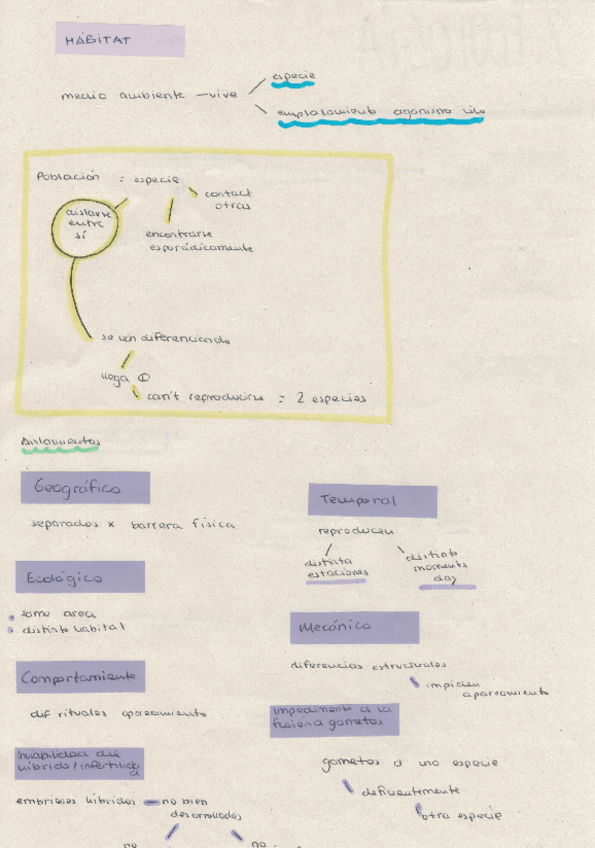 HÁBITAT
medio ambiente - vive
especie
emplazamiento organismo vivo
Población : especie
contact
otras
aislarse
entre
sí
encontrarse
esporádicamente
se van diferenciando
llega
can't reproducirse = 2 especies
Aislamientos
Geográfico
separados x barrera física
Ecológico
same area
distinto habitat
Comportamiento
dif rituales apareamiento
Inviabilidad del
híbrido/infertilidad
embriones híbridos - no bien
desarrollados
no
no
Temporal
reproducen
distinta
estaciones
distinto
momento
day
Mecánico
diferencias estructurales
impiden
apareamiento
Impedimento a la
fusion d gametos
gametos d una especie
deficientemente
otra especie